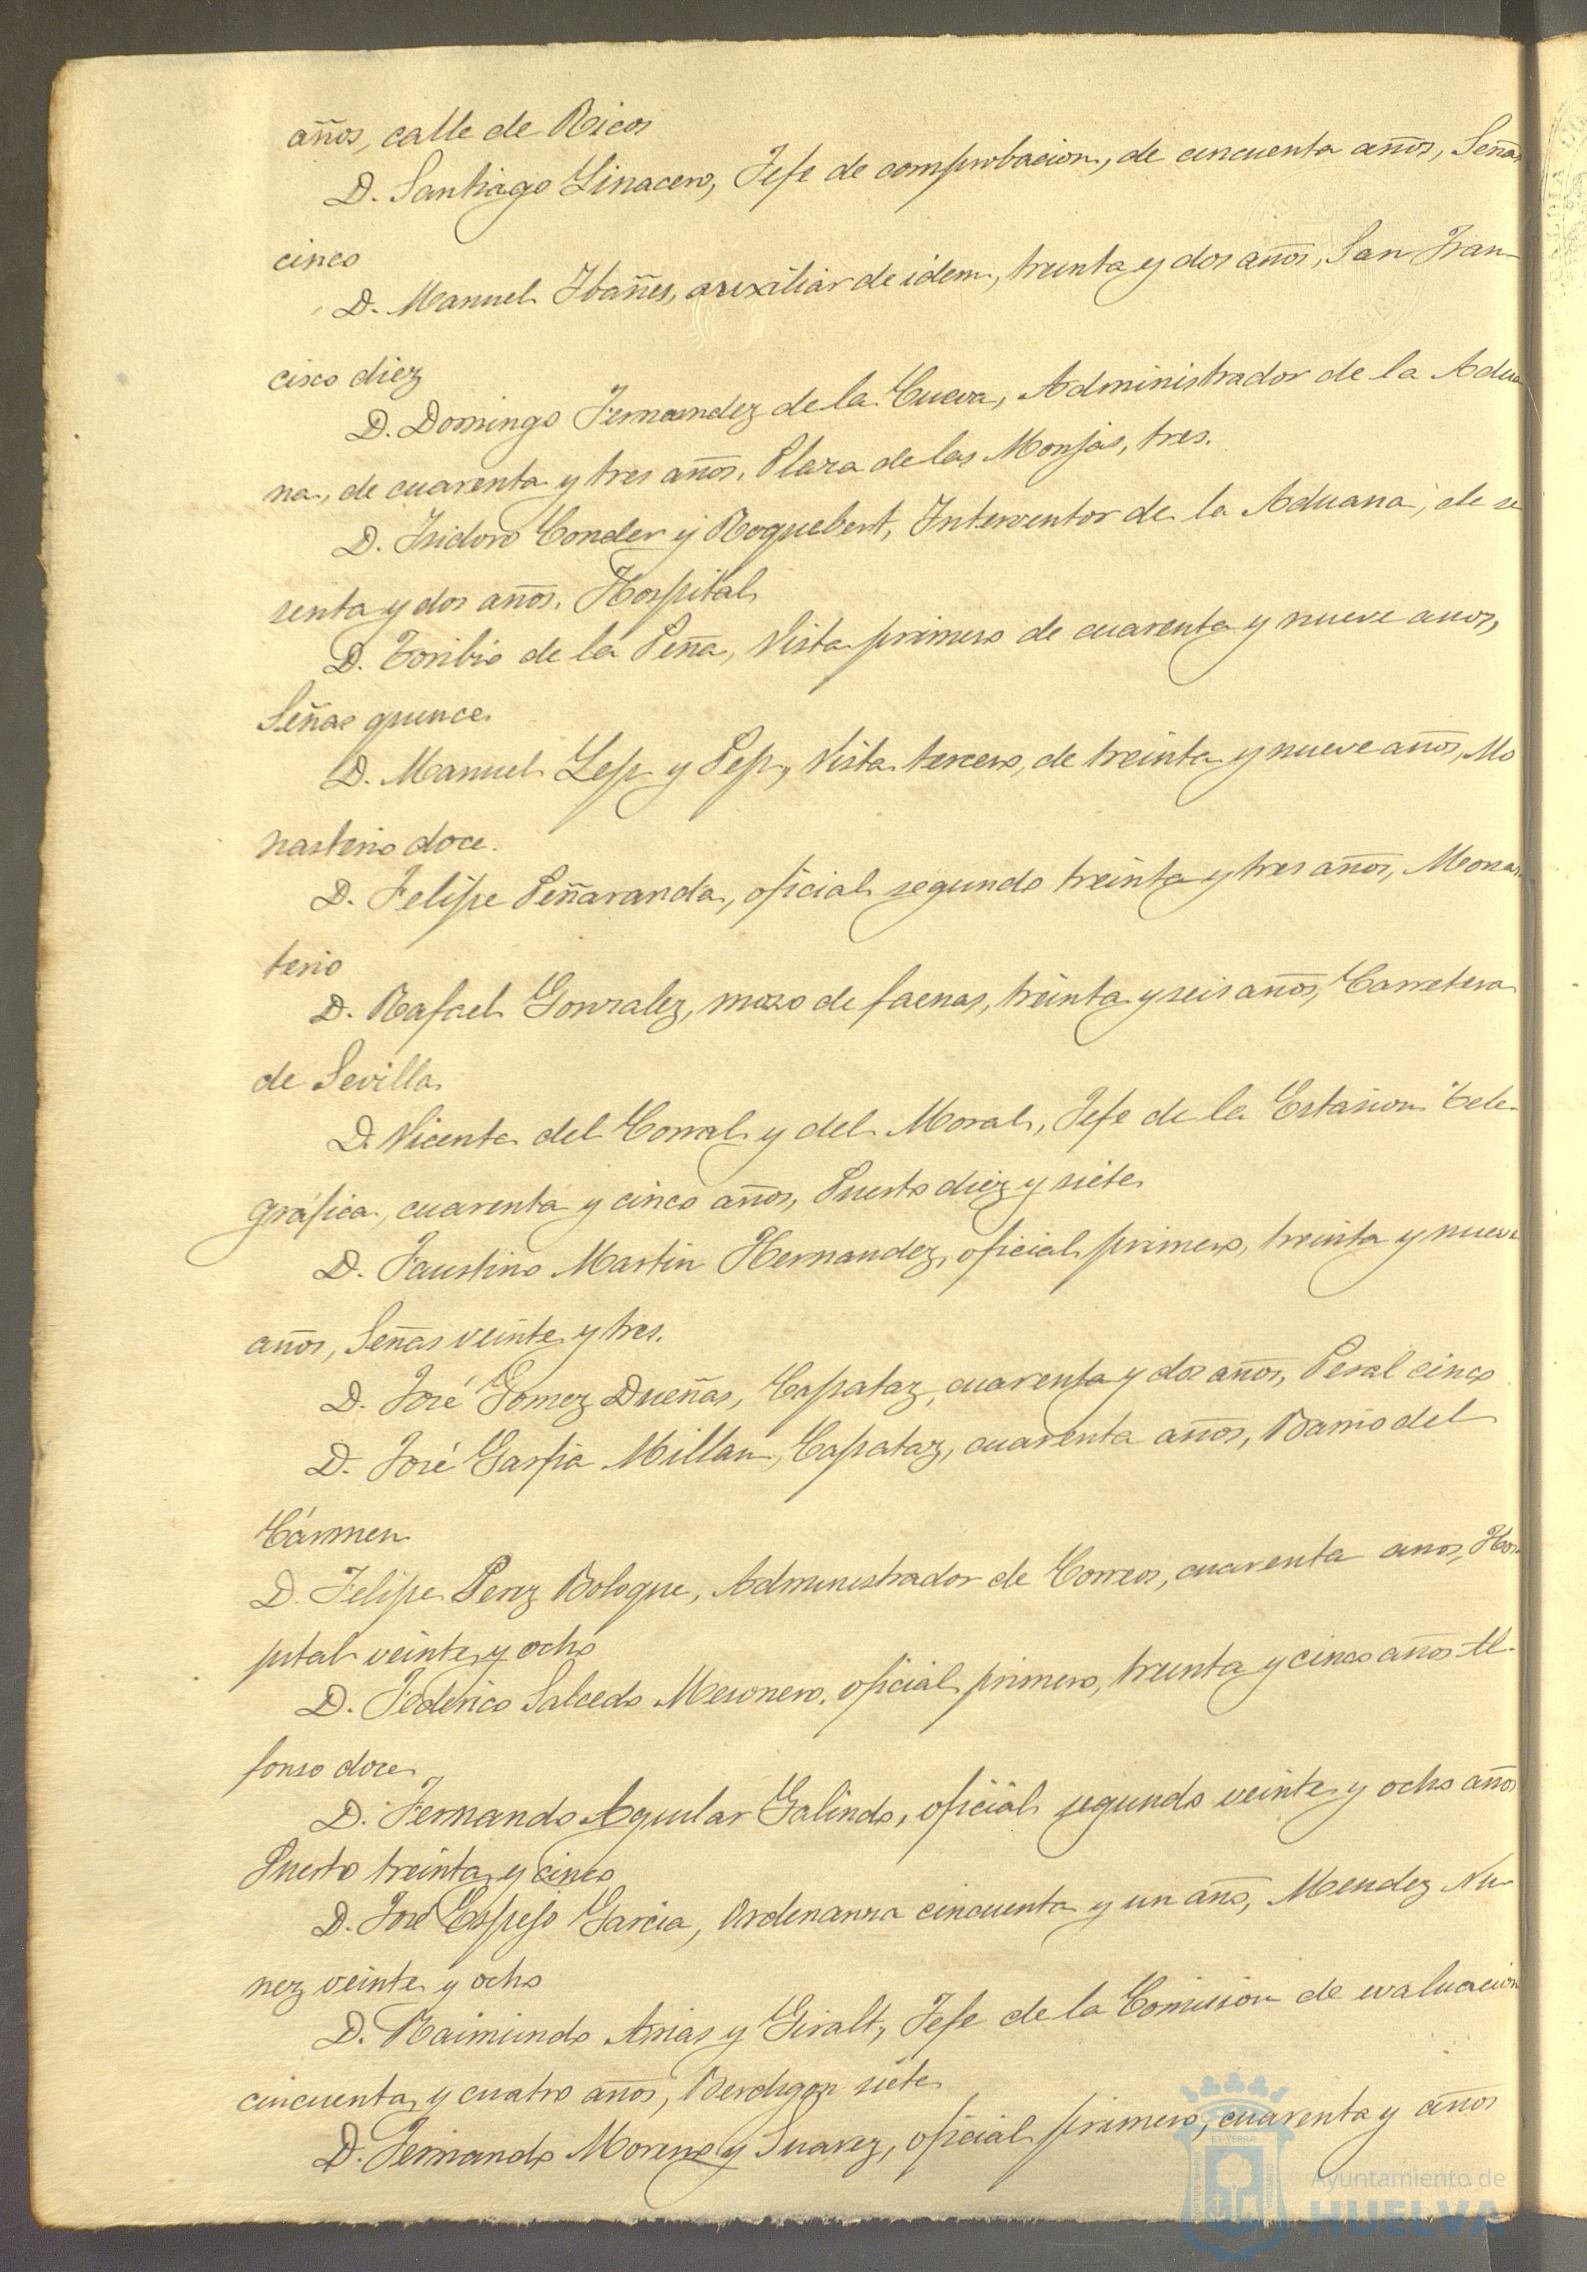 años, calle de Ricos
D. Santiago Linacero, Jefe de comprobacion, de cincuenta años, Señas
cinco
D. Manuel Ibañes, auxiliar de idem, treinta y dos años, San Fran-
cisco diez
D. Domingo Fernandez de la Cueva, Administrador de la Adua
na, de cuarenta y tres años, Plaza de las Monjas, tres.
D. Isidoro Conder y Roquebert, Interventor de la Aduana, de se
senta y dos años, Hospital
D. Toribio de la Peña, Vista primero de cuarenta y nueve años,
Señas quince
D. Manuel y Pep, Vista tercero, de treinta y nueve años, Mo
nasterio doce.
D. Felipe Peñaranda, oficial segundo treinta y tres años, Monas
terio
D. Rafael Gonzalez, mozo de faenas, treinta y seis años, Carretera
de Sevilla
D. Vicente del Corral y del Moral, Jefe de la Estasion Tele
gráfica, cuarenta y cinco años, Puerto diez y siete
D. Faustino Martin Hernandez, oficial primero, treinta y nueve
años, Señas veinte y tres.
D. José Gomez Dueñas, Capataz, cuarenta y dos años, Peral cinco
D. José Garfia Millan, Capataz, cuarenta años, Barrio del
Cármen
D. Felipe Perez Bologne, Administrador de Correos, cuarenta anos, Hos
pital veinte y ocho
D. Federico Salcedo Mesonero, oficial primero, treinta y cinco años Al-
fonso doce
D. Fernando Aguilar Galindo, oficial segundo veinte y ocho años
Puerto treinta y cinco
D. José Espejo Garcia, Ordenanza cincuenta y un año, Mendez Nu-
nez veinte y ocho
D. Raimundo Arias y Giralt, Jefe de la Comision de evaluacion
cincuenta y cuatro años, Berdigon siete
D. Fernando Moreno y Suarez, oficial primero, cuarenta y años
Ayuntamiento de
HUELVA